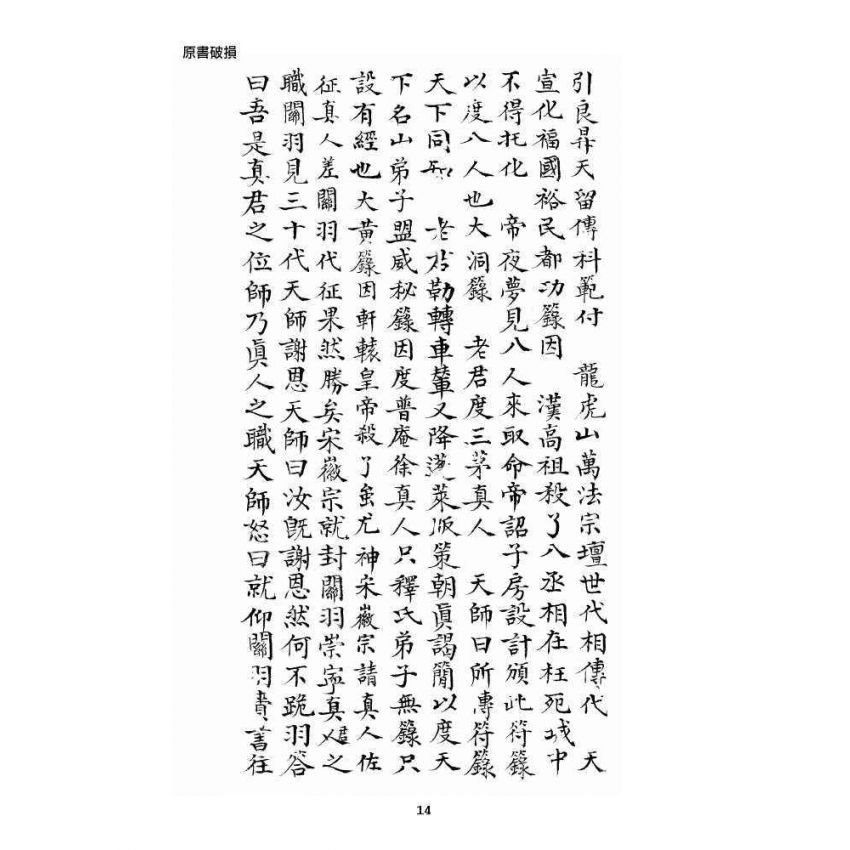 原書破損
引良昇天留傳科範付　龍虎山萬法宗壇世代相傳代　天
宣化福國裕民都功籙因　漢高祖殺了八丞相在枉死城中
不得托化　帝夜夢見八人來取命帝詔子房設計頒此符籙
以度八人也大洞籙　老君度三茅真人　天師曰所傳符籙
天下同　老　勒轉車輦又降蓬萊派策朝眞謁簡以度天
下名山弟子盟威秘籙因度普庵徐真人只釋氏弟子無籙只
設有經也大黃籙因軒轅皇帝殺了蚩尤神宋徽宗請真人佐
征真人差關羽代征果然勝矣宋徽宗就封關羽崇寧真君之
職關羽見三十代天師謝恩天師曰汝既謝恩然何不跪羽答
曰吾是真君之位師乃眞人之職天師怒曰就仰關羽賫書往
14